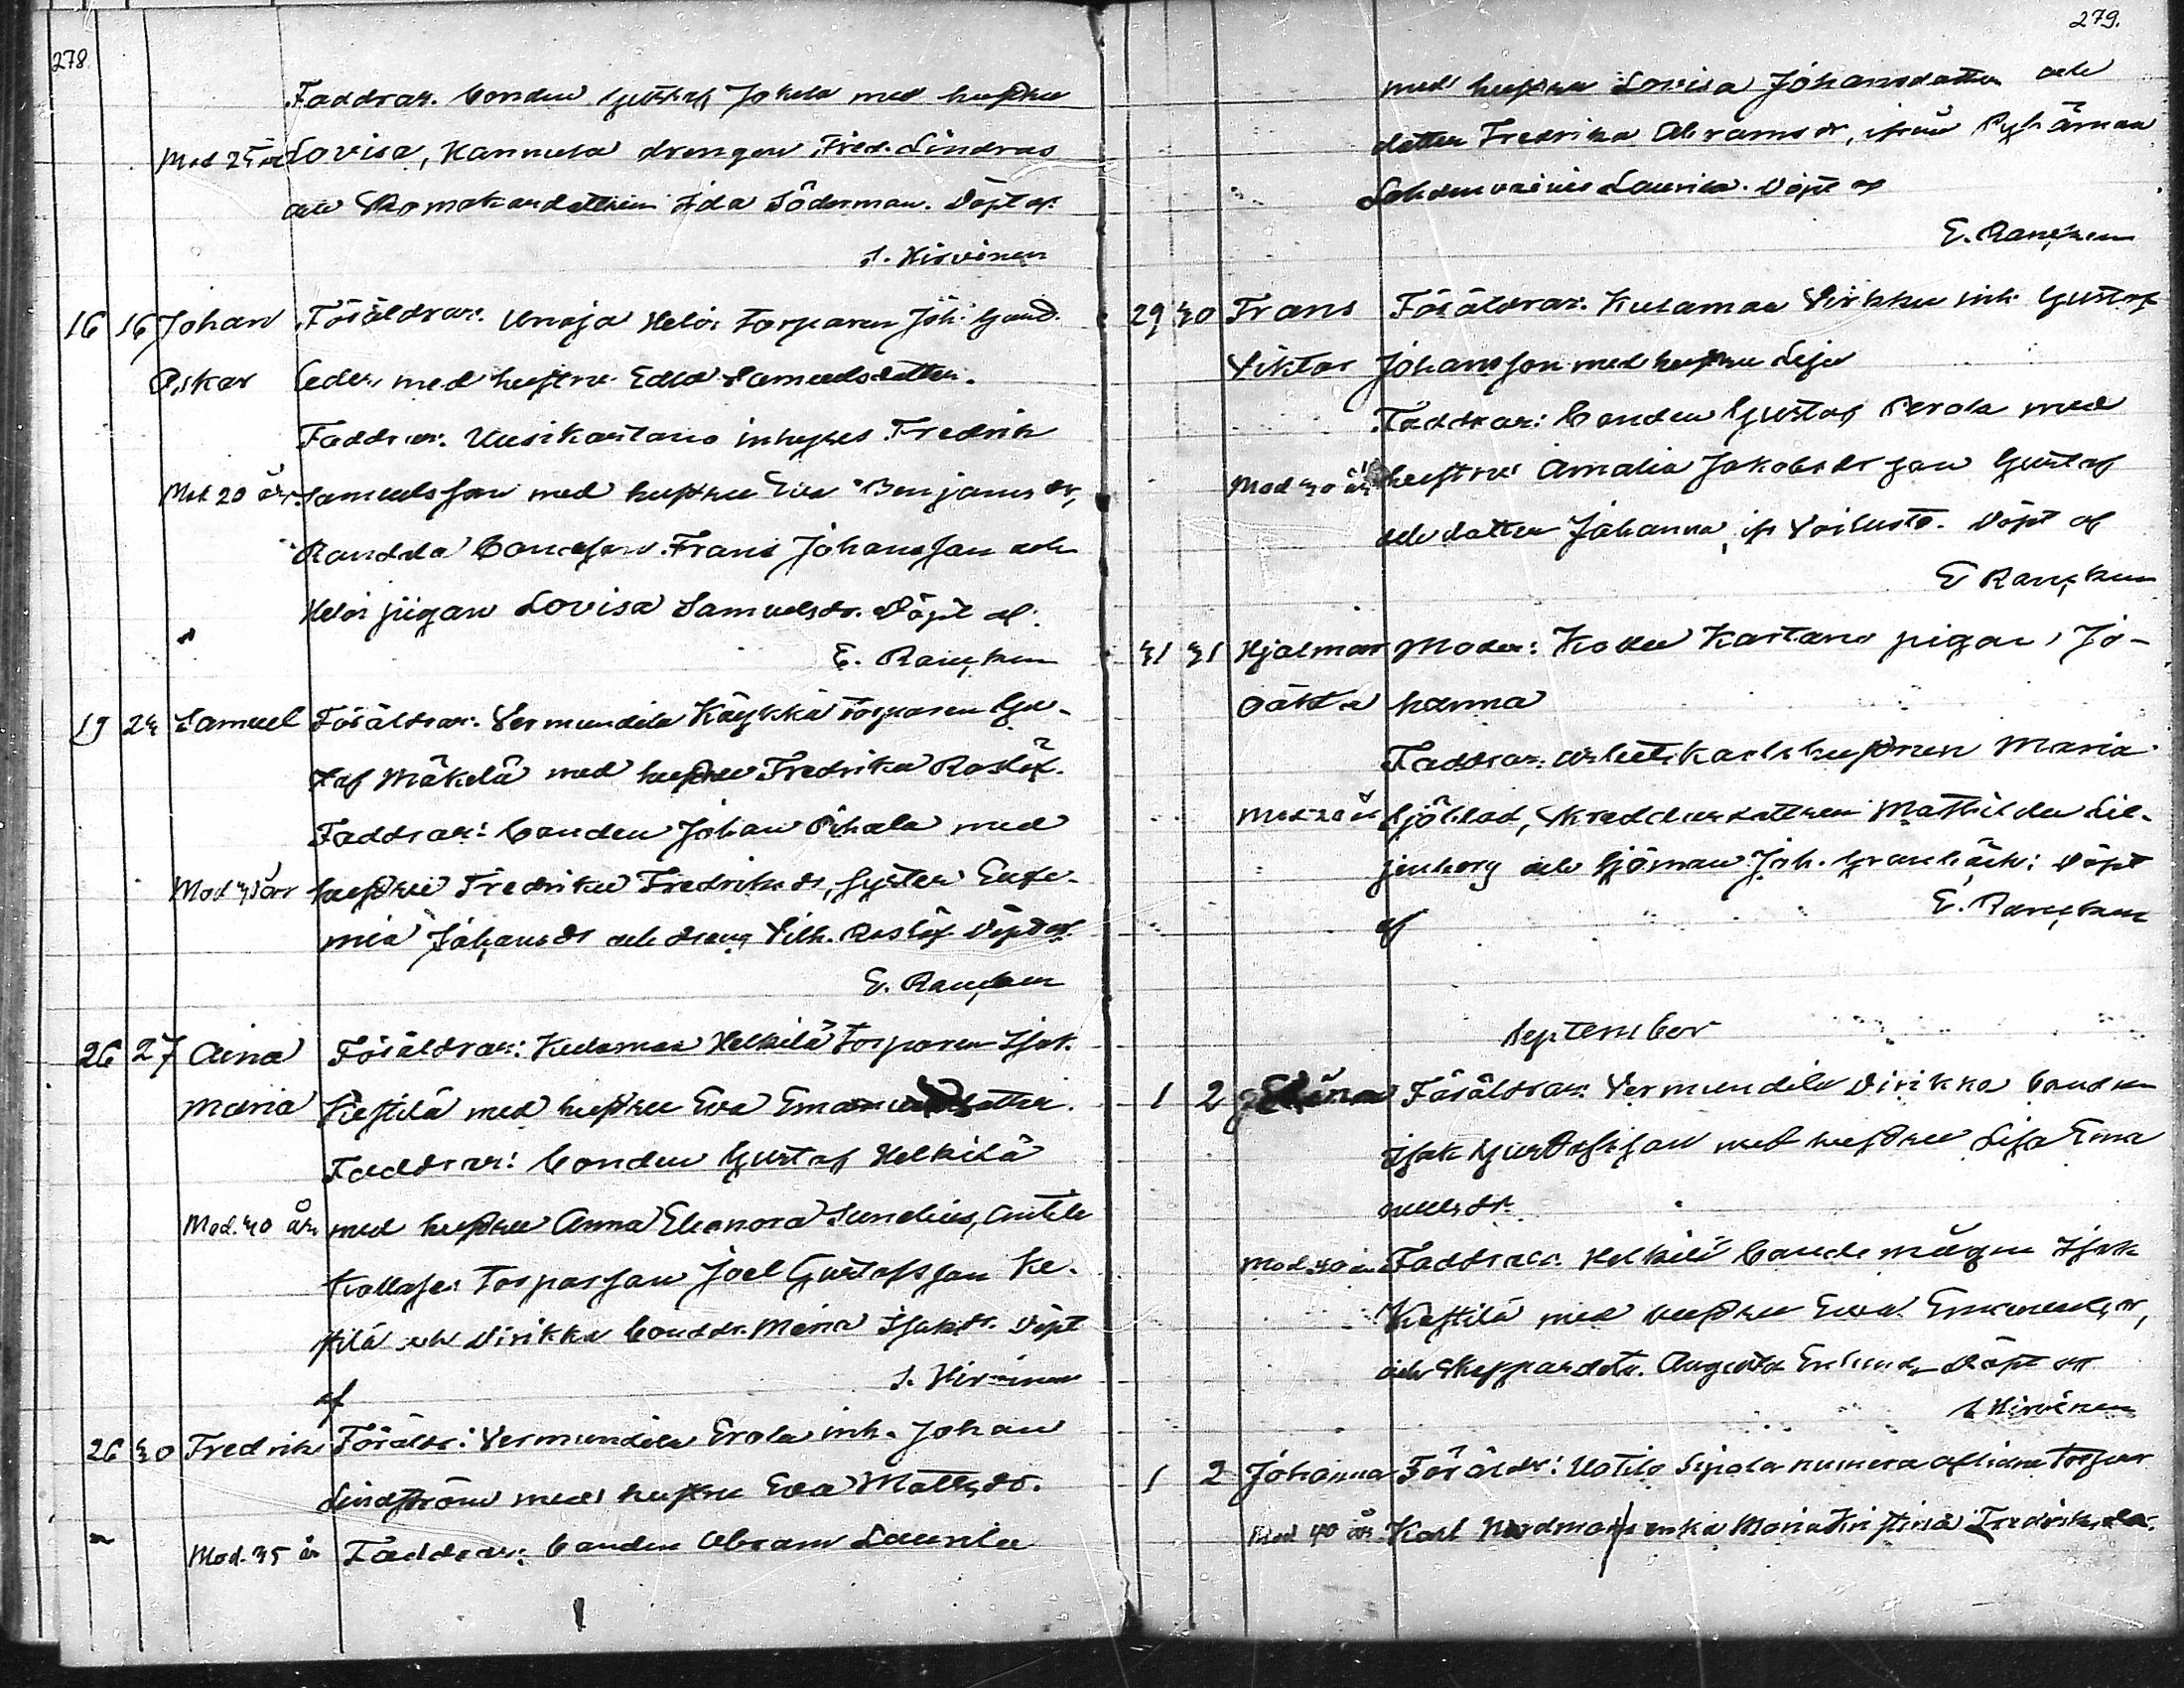 278.
Faddrar. bonden Gustaf Jokela med hustru
Mod 25 år Lovisa, Kannusa drengen Fred. Lindros
och Skomakardottren Ida Söderman. Döpt af
S. Hirvinen
16 16 Johan Föräldrar: Unaja Heloi Torparen Joh. Gust.
Oskar Ceder, med hustru Edla Samuelsdotter.
Faddrar. Uusikartano inhyses Fredrik
Mod 20 år. Samuelsson med hustru Eva Benjamsdr,
Randela Bondeson Frans Johansson och
Heloi pigan Lovisa Samuelsdr. Döpt af.
E. Rancken
19 23 Samuel Föräldrar: Vermundila Käykkä Torparen Gu-
staf Mäkelä med hustru Fredrika Roslöf.
Faddrar: bonden Johan Pihala med
Mod 35 år hustru Fredrika Fredriksdr, syster Eufe-
mia Johansdr och dreng Vilh. Roslöf. Döpt af
E. Rancken
26 27 Aina Föräldrar: Kulamaa Heikilä Torparen Isak
Maria Kestilä med hustru Eva Emanuelsdotter.
Faddrar: bonden Gustaf Heikilä
Mod. 30 år, med hustru Anna Eleonora Sundelius, Antila
Kollasen Torparson Joel Gustafsson Ke-
stilä och Dirikka bonddr. Maria Isaksdr. Döpt
af S. Hirvinen
26 30 Fredrik Föräldr: Vermundila Erola inh. Johan
Lindström med hustru Eva Mattsdr.
Mod. 35 år Faddrar: bonden Abram Laurila
279.
med hustru Lovisa Johansdotter och
dotter Fredrika Abramsdr, ifrån Pyhämaa
Lahdenvainio Laurila. Döpt af
E. Rancken
29 30 Frans Föräldrar. Kulamaa Sirkku inh Gustaf
Viktor Johansson med hustru Lisa
Faddrar: bonden Gustaf Perola med
Mod 30 år hustru Amalia Jakobsdr son Gustaf
och dotter Johanna, if Voiluoto. Döpt af
E Rancken
31 31 Hjalmar Moder: Kodu Kartano pigan, Jo-
hanna
Faddrar: arbetskarlshustrun Maria
Mod 20 år Sjöblad, Skreddardottren Mathilda Lil-
jenberg och Sjöman Joh. Granbäck: Döpt
af E. Rancken
September
1 2 Föräldrar: Vermundila Dirikka bonden
Isak Gustafsson med hustru Lisa Ema
nuelsdr.
Mod. 30 år Faddrar: Heikilä bondemågen Isak
Kestilä med hustru Eva Emanuelsdr,
och Skeppardotr. Augusta Enlund. Döpt af
S Hirvinen
1 2 Johanna Föräldr: Uotila Sipola numera aflidne Torpar
Mod 40 år Karl Nordmans enka Maria Kristina Fredriksdr.